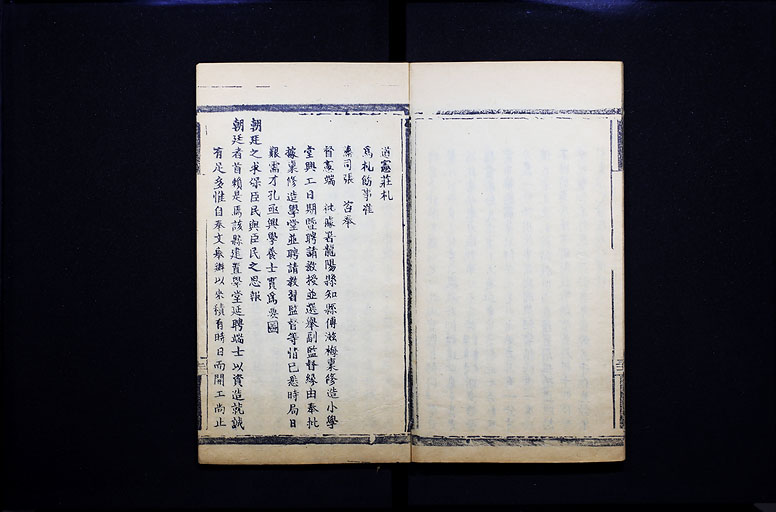 道憲莊札
為札飭事准
藩司張 咨奉
督憲端 批據署龍陽縣知縣傅滋梅稟修造小學
堂興工日期暨聘請教授並選舉副監督緣由奉批
據稟修造學堂並聘請教習監督等情已悉時局日
艱需才孔亟興學養士實為要圖
朝廷之求保臣民與臣民之思報
朝廷者首賴是焉該縣建置學堂延聘端士以資造就誠
有足多惟自奉文舉辦以來積有時日而開工尚止